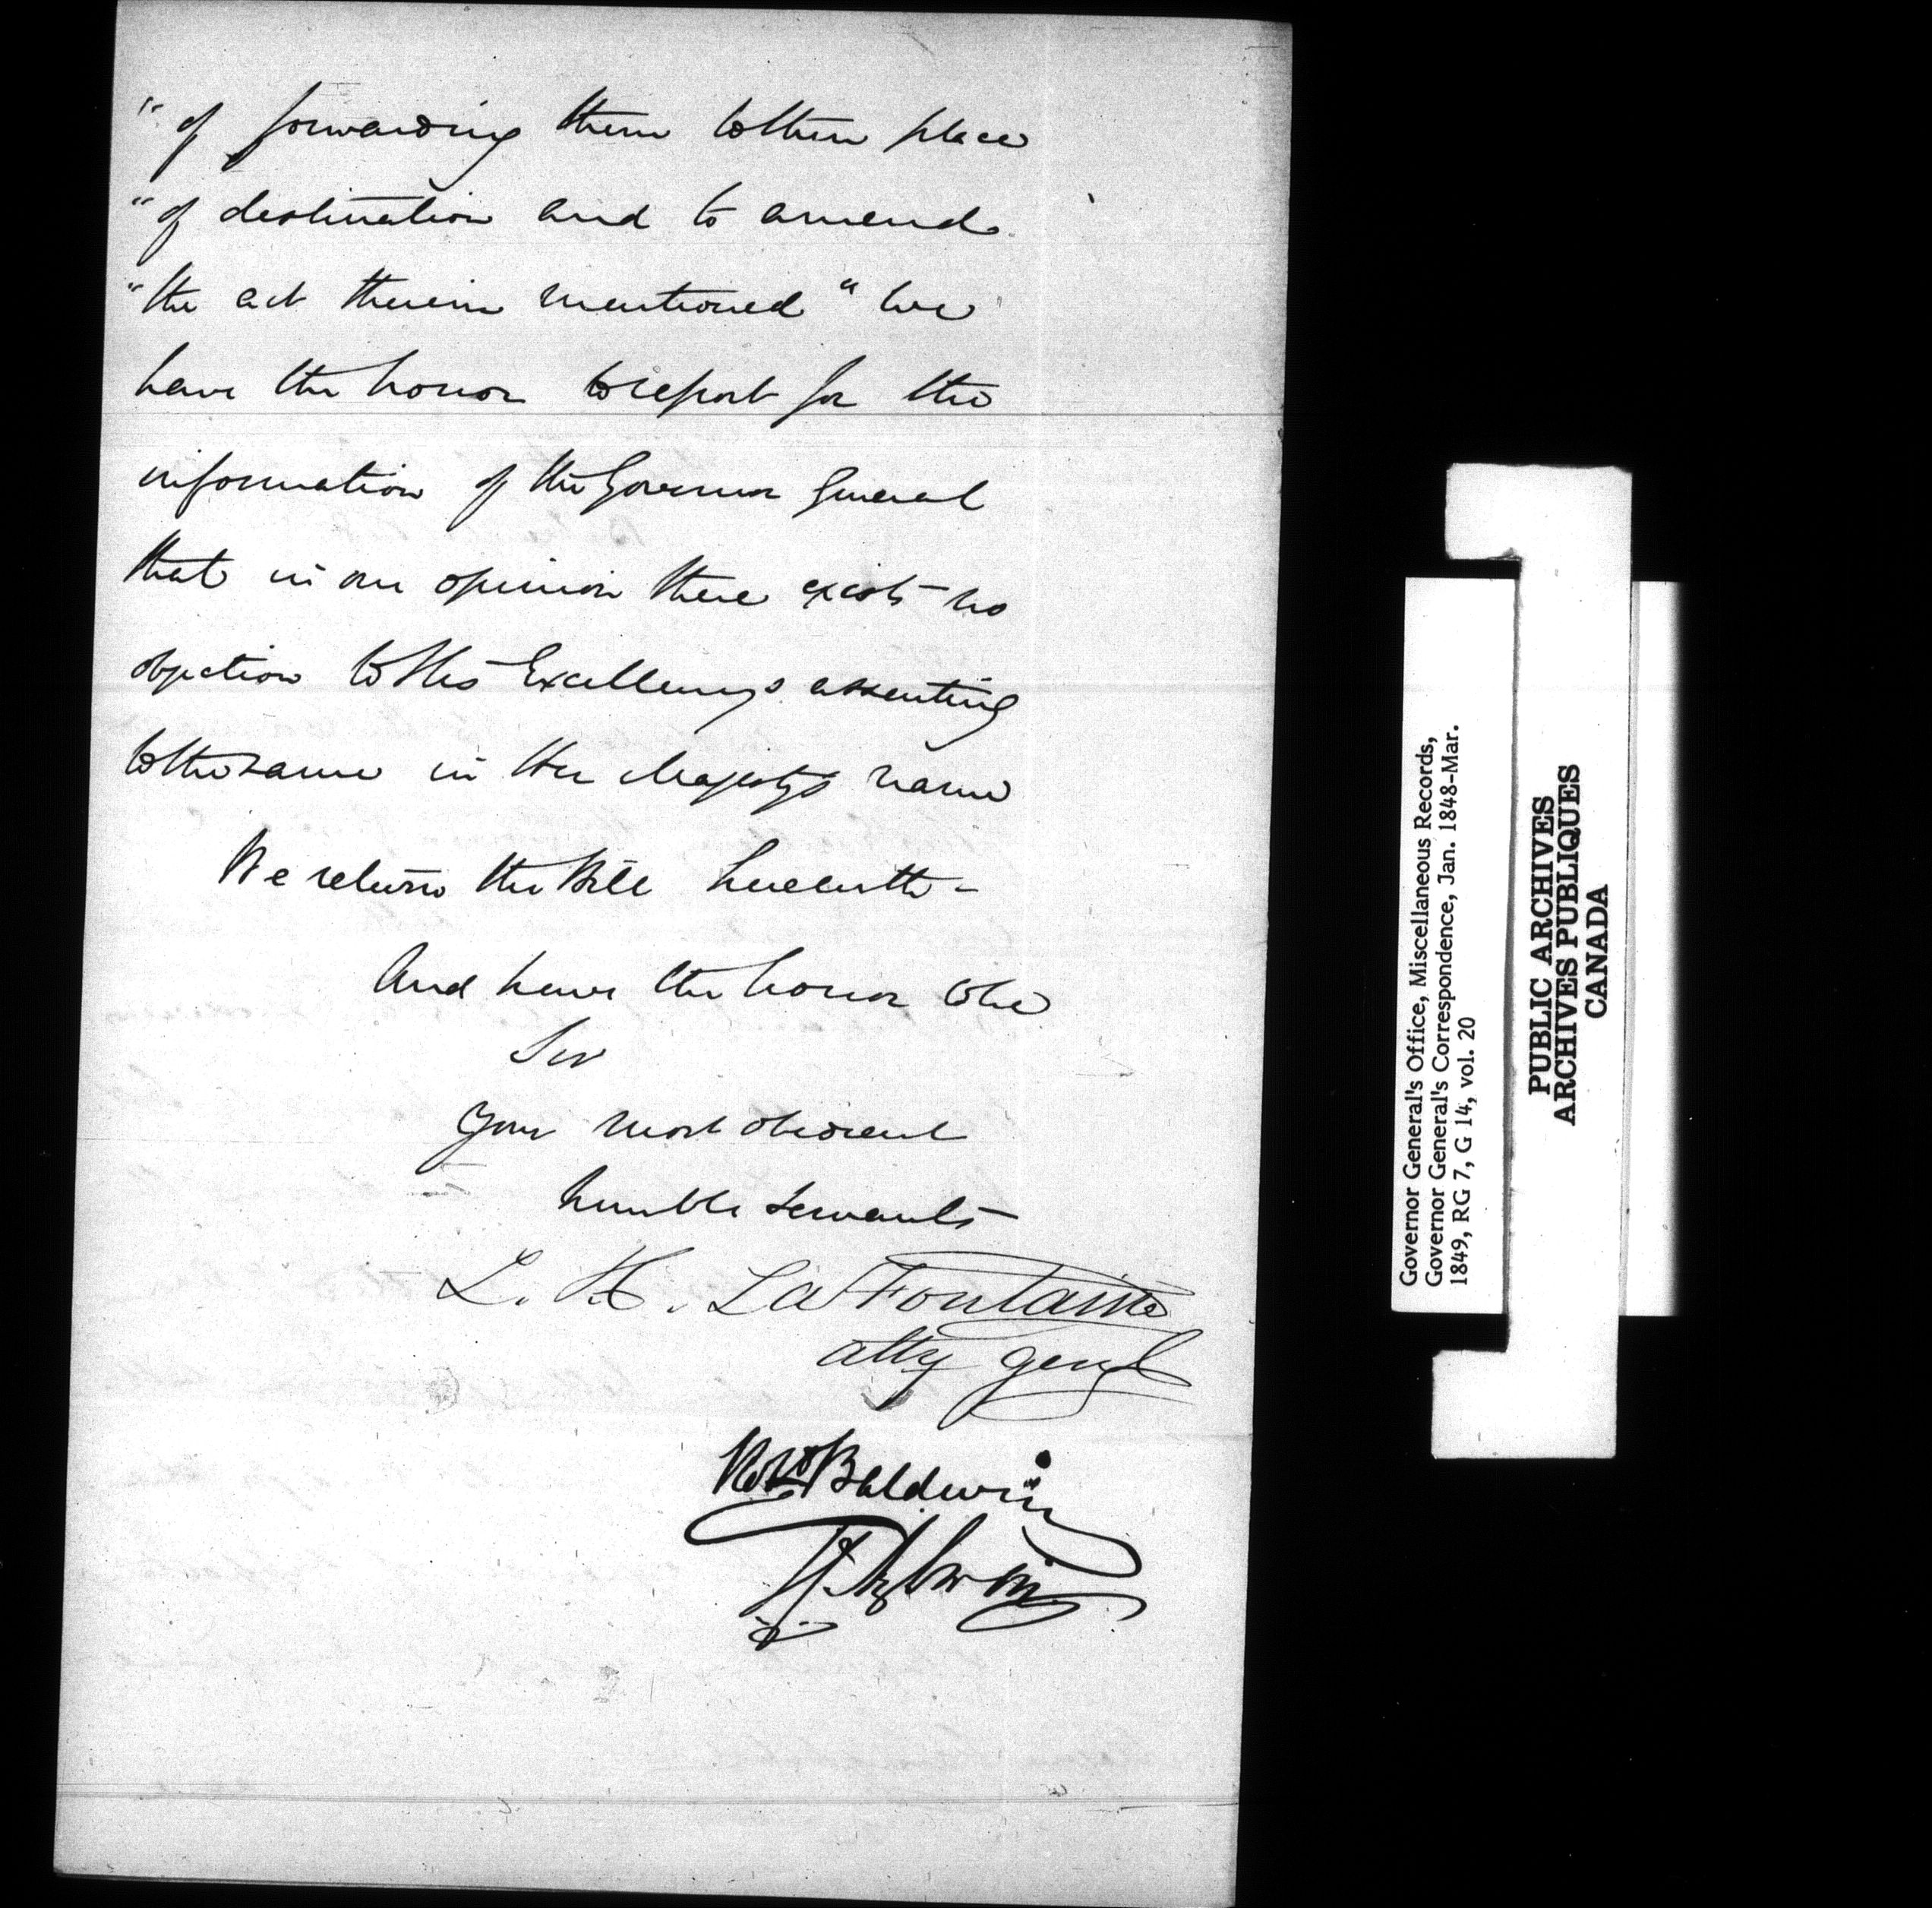 " of forwarding them to their place
" of destination and to amend
" the act therein mentioned " we
have the honor to report for the
information of the Governor General
that in our opinion there exists no
objection to His Excellency's assenting
to the same in Her Majesty's name
We return the Bill herewith -
And have the honor to be
Sir
Your most obedient
humble servants
L. H. LaFontaine
atty genl
Robt Baldwin
Governor General's Office, Miscellaneous Records,
Governor General's Correspondence, Jan. 1848-Mar.
1849, RG 7, G 14, vol. 20
PUBLIC ARCHIVES
ARCHIVES PUBLIQUES
CANADA